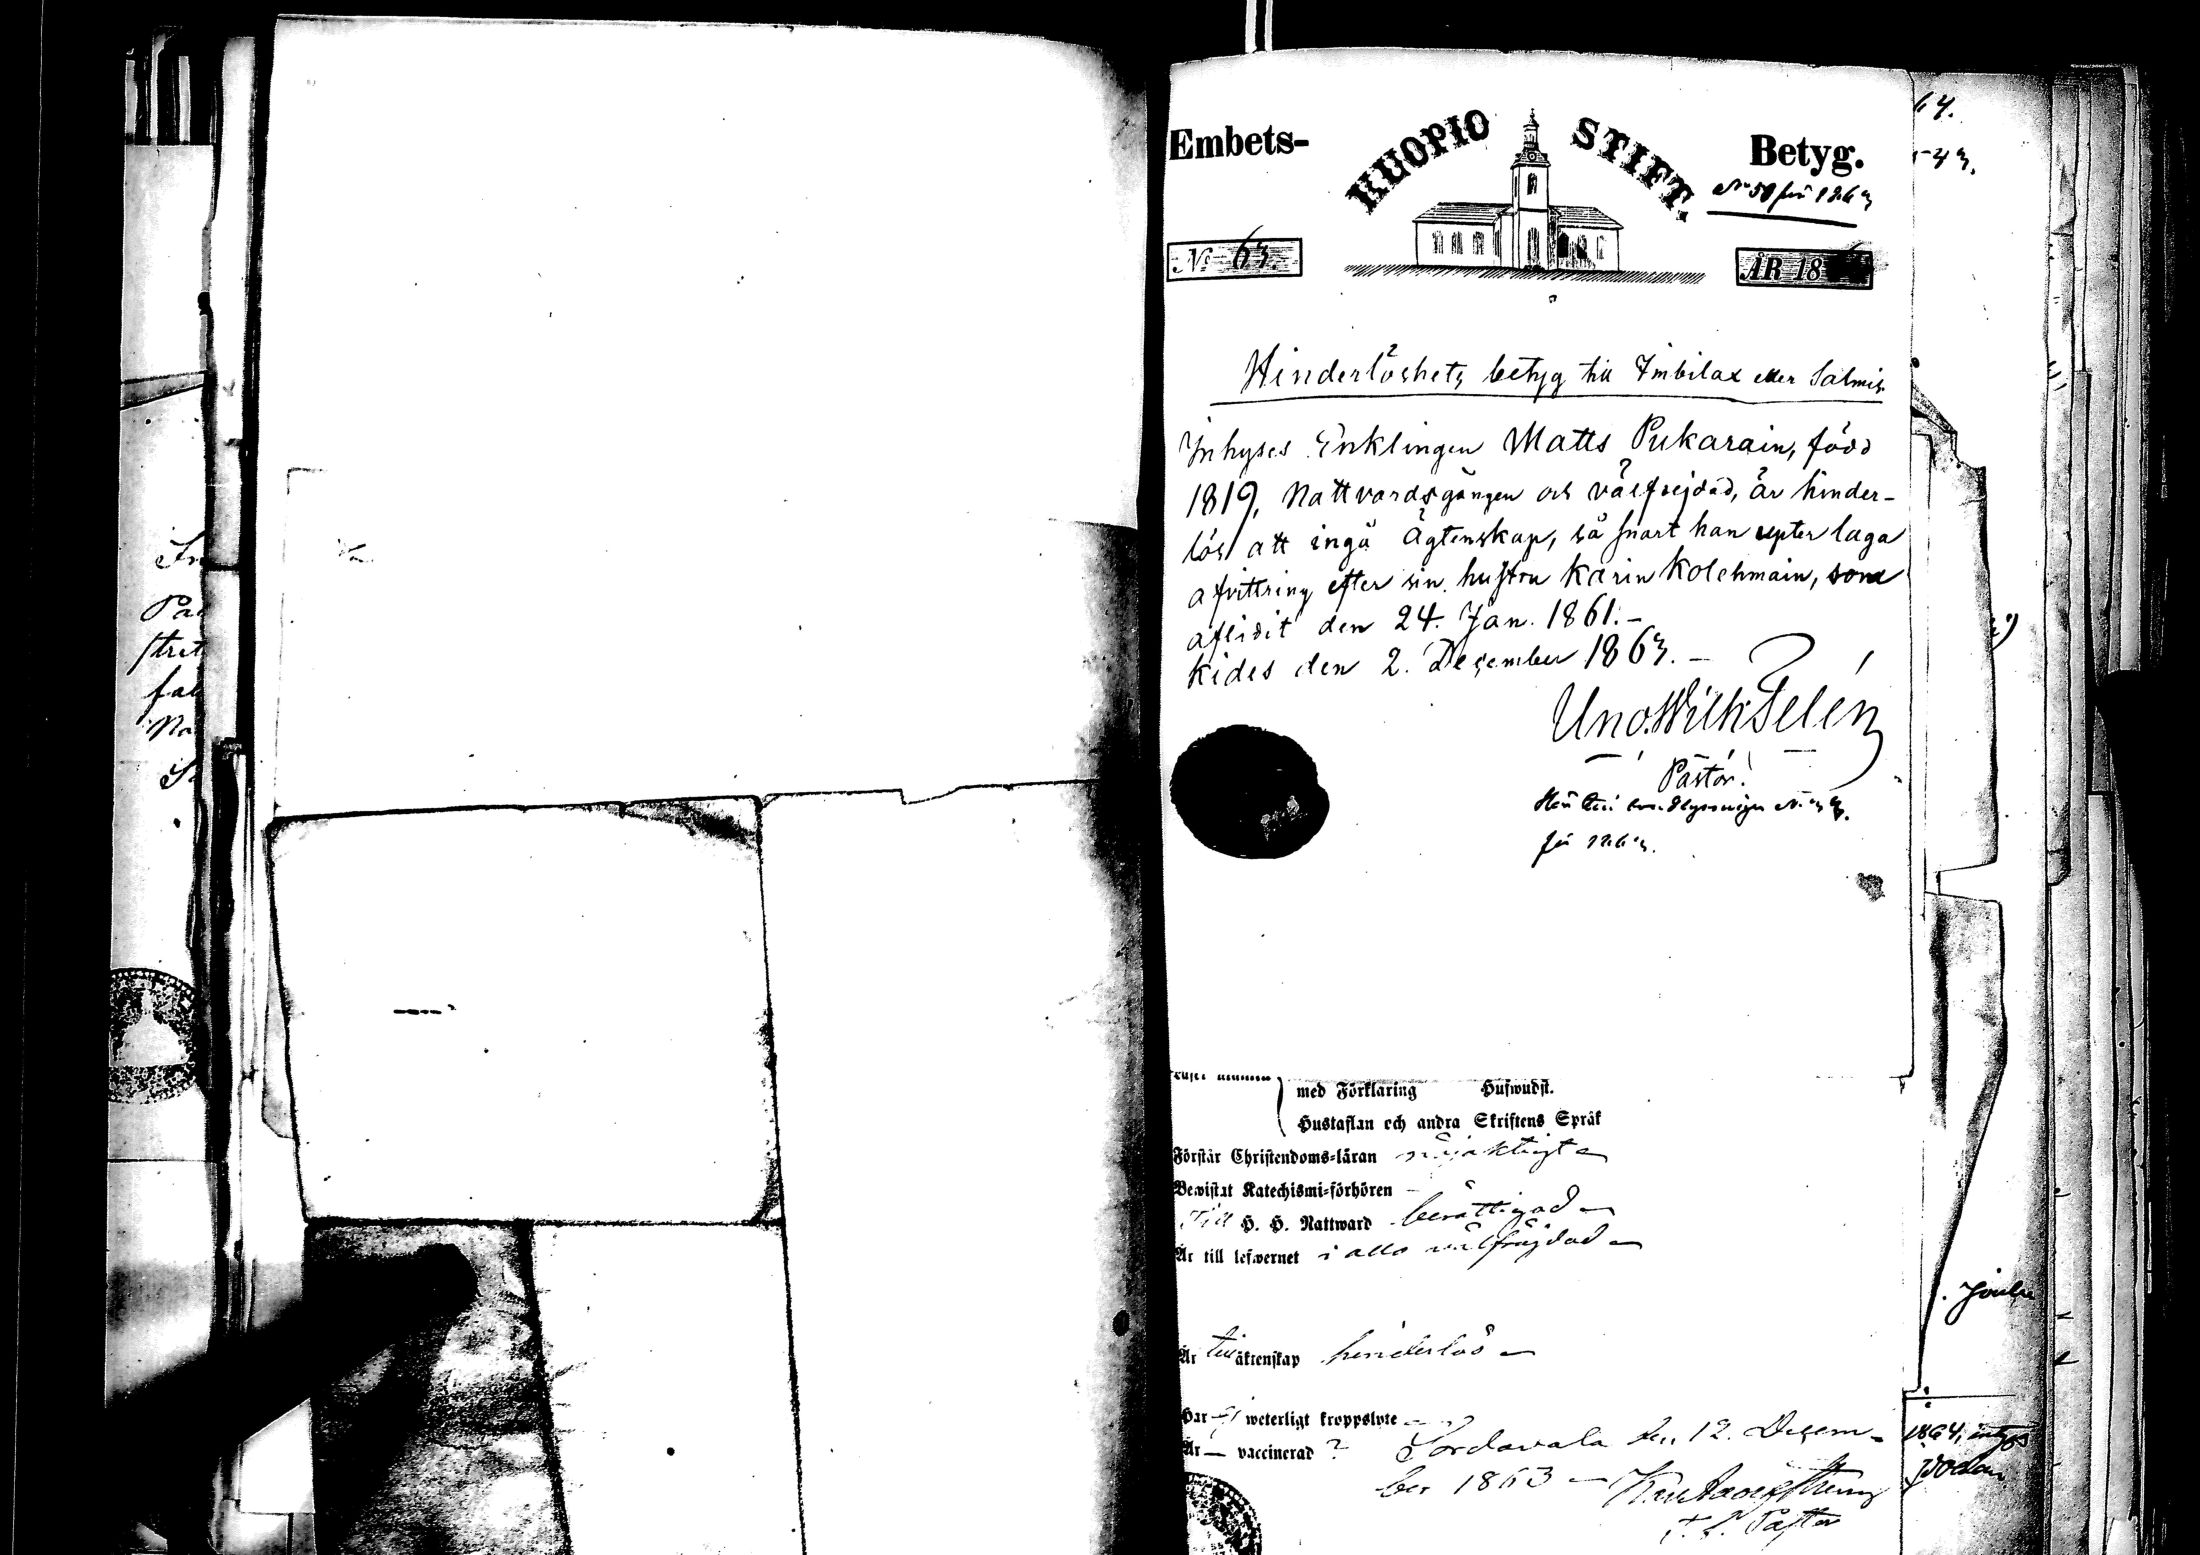 Embets-
KUOPIO STIFT.
Betyg.
No 50 för 1863
No 63.
ÅR 18
Hinderlöshets betyg till Imbilax eller Salmis
Inhyses Enklingen Matts Pukarain, född
1819, Nattvardsgången och välfrejdad, är hinder-
lös att ingå Ägtenskap, så snart han upter laga
afvittring efter sin hustru Karin Kolehmain, som
aflidit den 24. Jan. 1861.-
Kides den 2. December 1863.-
Uno Wilh Telén
Pastor.
för 1863.
med Förklaring Huswudst.
Hustaflan och andra Skriftens Språk
Förstår Christendoms-läran nöjaktigt
Bewistat Katechismi-förhören -
Till H. H. Nattward berättigad
Är till lefwernet i allo välfräjdad
Är till äktenskap hinderlös
Har ej weterligt kroppslyte
Är - vaccinerad ? Sordavala den 12. Decem-
ber 1863
T. f. Pastor
64.
Joulu
1864,